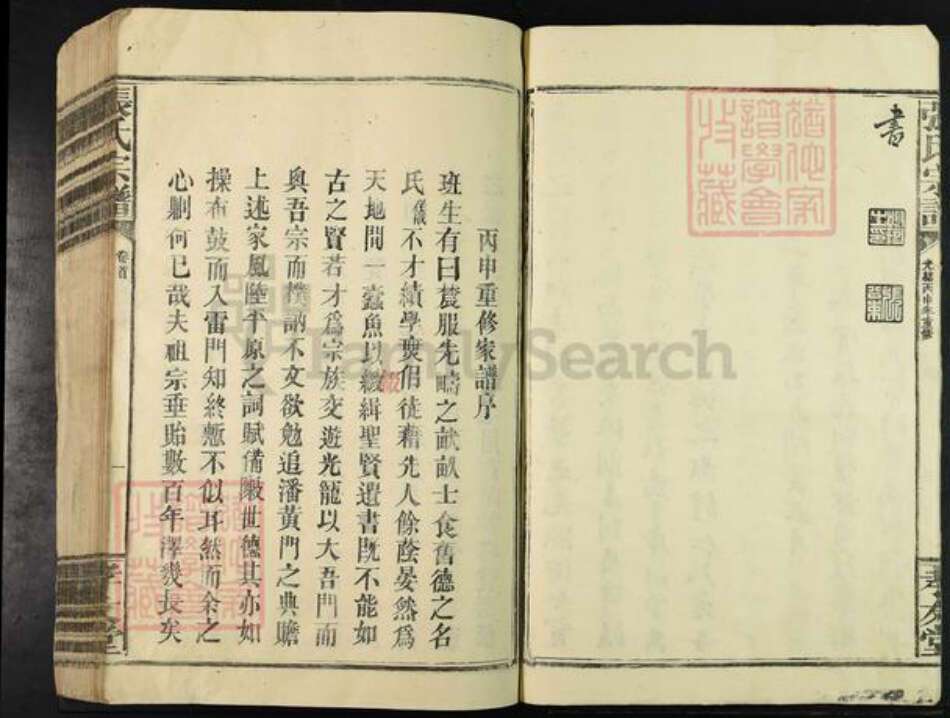 書
張氏宗譜
光緒丙申年重修
孝友堂
丙申重修家譜序
班生有曰農服先疇之畝畝士食舊德之名
氏儀不才績學奭侶徒藉先人餘蔭晏然爲
天地間一蠹魚以綴緝聖賢遺書旣不能如
古之賢若才爲宗族交遊光寵以大吾門而
與吾宗而樸訥不文欲勉追潘黃門之典贍
上述家風陸平原之詞賦備敶世德其亦如
操布鼓而入雷門知終慙不似耳然而余之
心則何已哉夫祖宗垂貽數百年澤幾長矣
張氏宗譜
卷首
一
孝友堂
猶他家譜學會收藏
FamilySearch